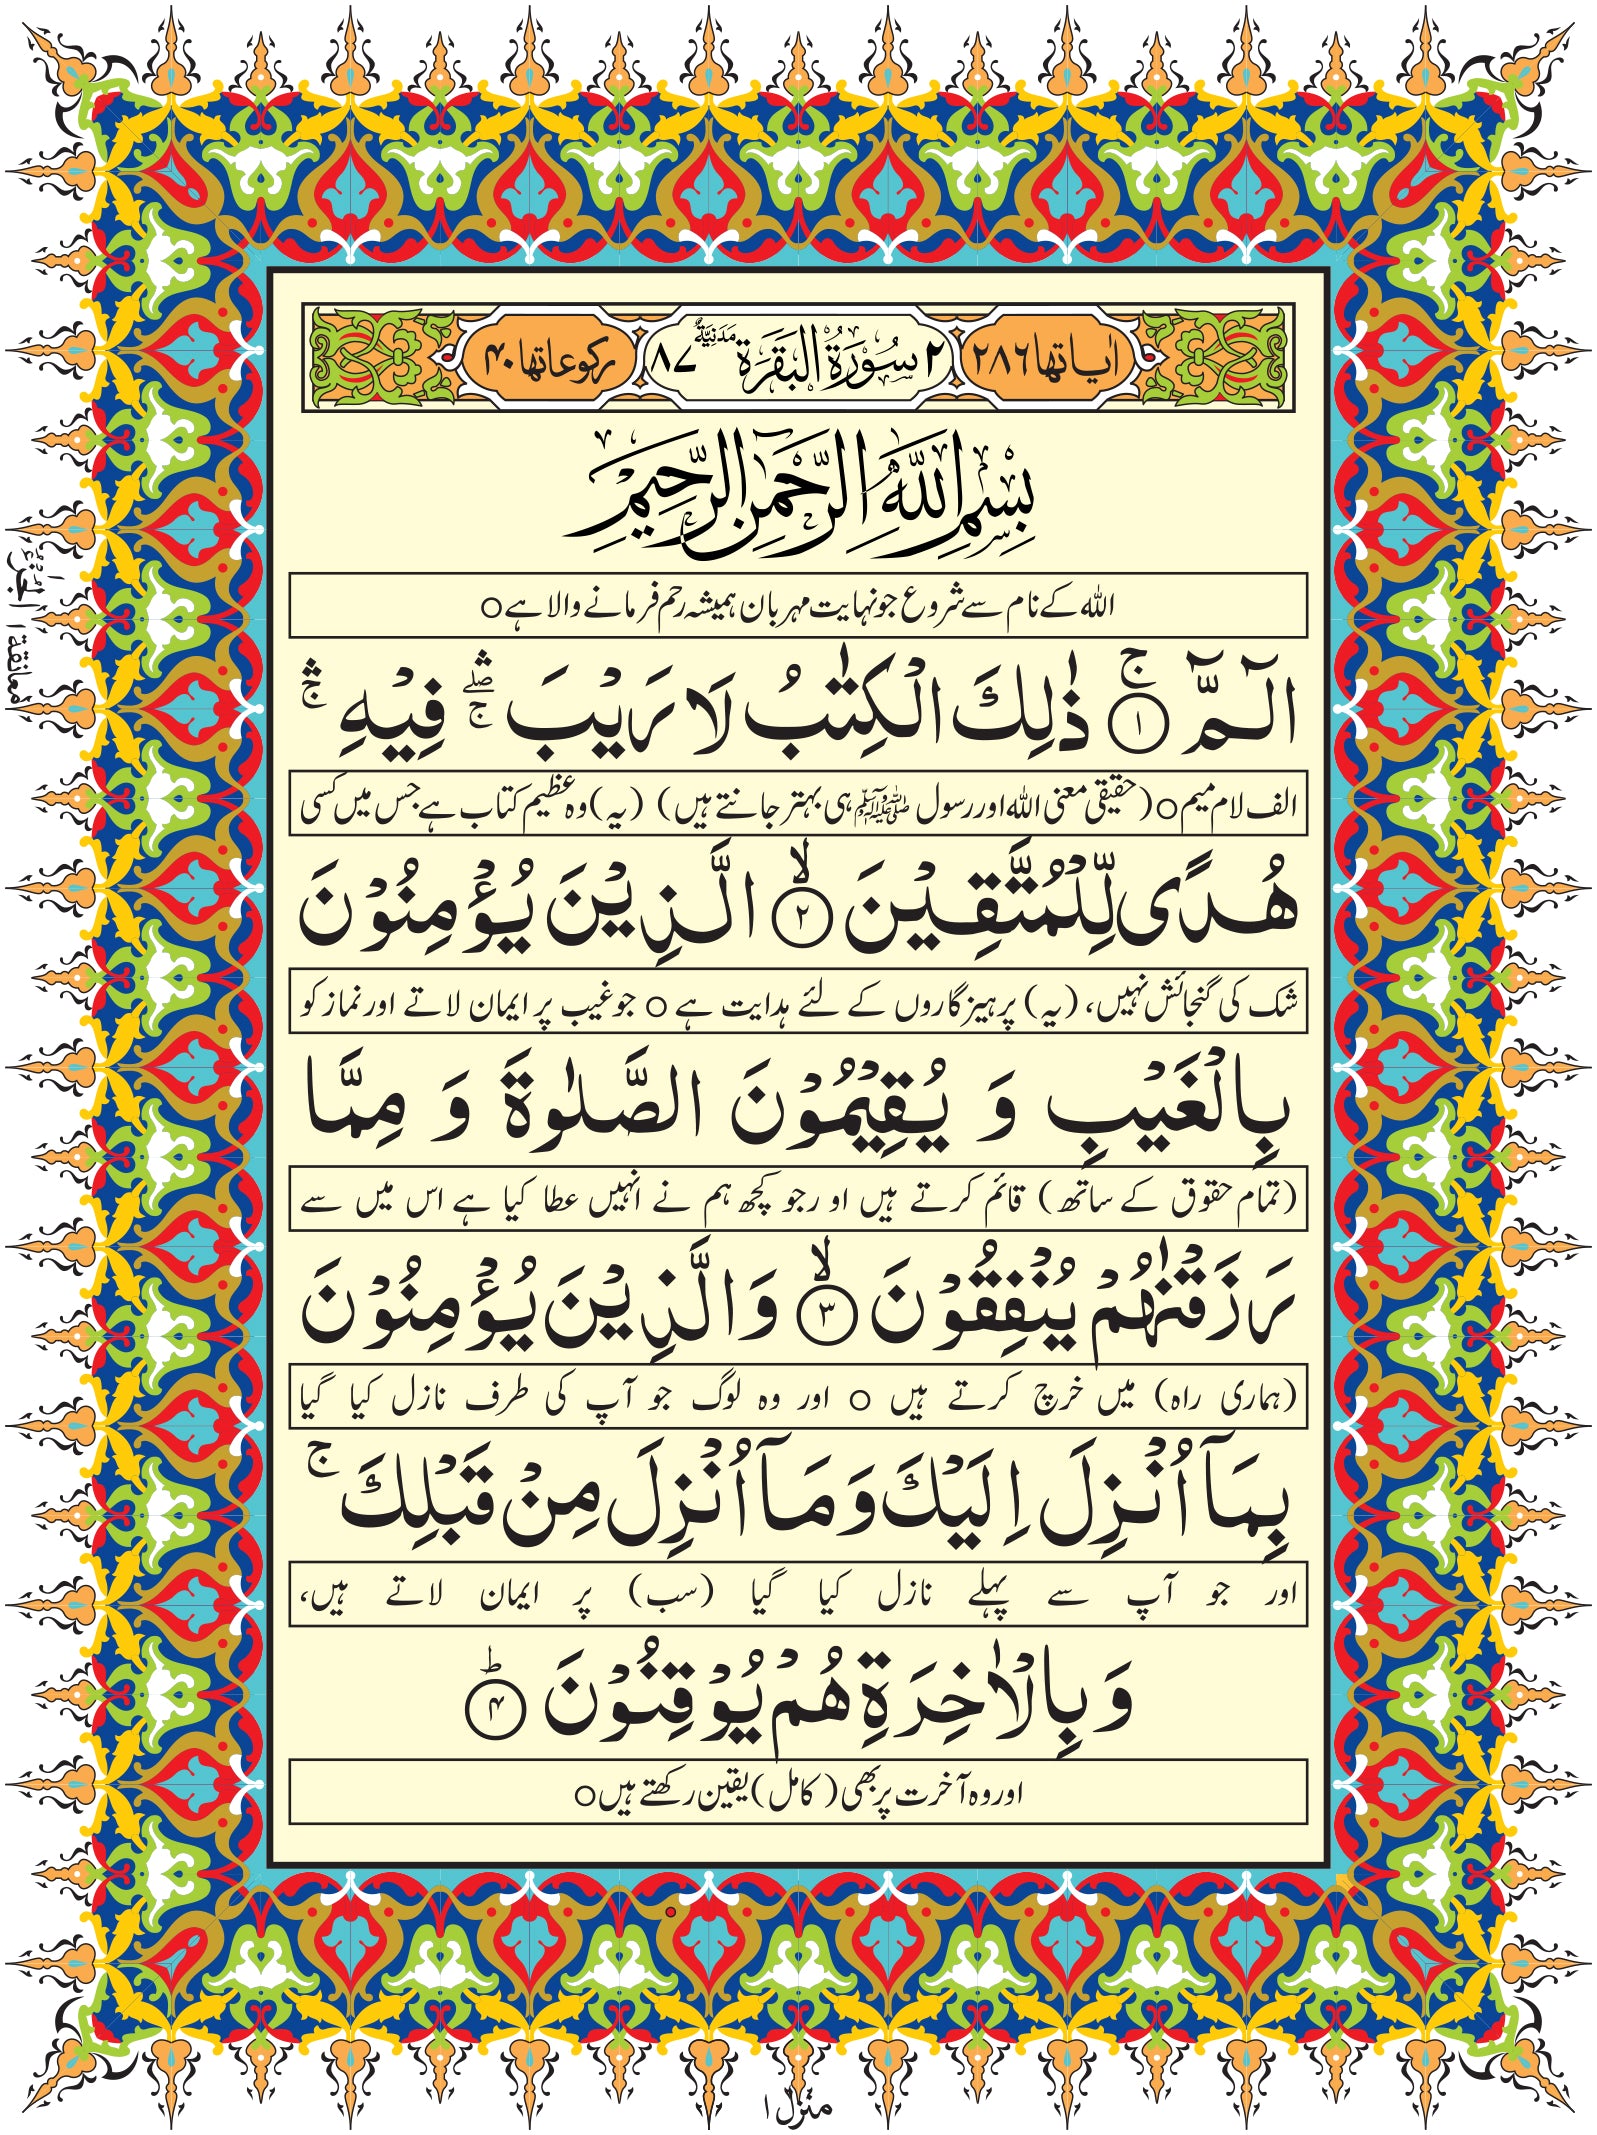 اٰیاتها ۲۸۶ ۲ سُوْرَةُ الْبَقَرَةِ مَدَنِیَّةٌ ۸۷ رکوعاتها ۴۰
بِسْمِ اللّٰهِ الرَّحْمٰنِ الرَّحِیْمِ
اللہ کے نام سے شروع جو نہایت مہربان ہمیشہ رحم فرمانے والا ہے ○
الٓـمّٓ ۚ﴿۱﴾ ذٰلِكَ الْكِتٰبُ لَا رَیْبَ ۛۖۚ فِیْهِ ۛۚ
الف لام میم ○ (حقیقی معنی اللہ اور رسول ﷺ ہی بہتر جانتے ہیں) (یہ) وہ عظیم کتاب ہے جس میں کسی
هُدًی لِّلْمُتَّقِیْنَ ۙ﴿۲﴾ الَّذِیْنَ یُؤْمِنُوْنَ
شک کی گنجائش نہیں، (یہ) پرہیزگاروں کے لئے ہدایت ہے ○ جو غیب پر ایمان لاتے اور نماز کو
بِالْغَیْبِ وَ یُقِیْمُوْنَ الصَّلٰوةَ وَ مِمَّا
(تمام حقوق کے ساتھ) قائم کرتے ہیں او رجو کچھ ہم نے انہیں عطا کیا ہے اس میں سے
رَزَقْنٰهُمْ یُنْفِقُوْنَ ۙ﴿۳﴾ وَالَّذِیْنَ یُؤْمِنُوْنَ
(ہماری راہ) میں خرچ کرتے ہیں ○ اور وہ لوگ جو آپ کی طرف نازل کیا گیا
بِمَاۤ اُنْزِلَ اِلَیْكَ وَ مَاۤ اُنْزِلَ مِنْ قَبْلِكَ ۚ
اور جو آپ سے پہلے نازل کیا گیا (سب) پر ایمان لاتے ہیں،
وَ بِالْاٰخِرَةِ هُمْ یُوْقِنُوْنَ ؕ﴿۴﴾
اور وہ آخرت پر بھی (کامل) یقین رکھتے ہیں ○
معانقة ۱ الْجُزْءُ ۱
منزل ۱